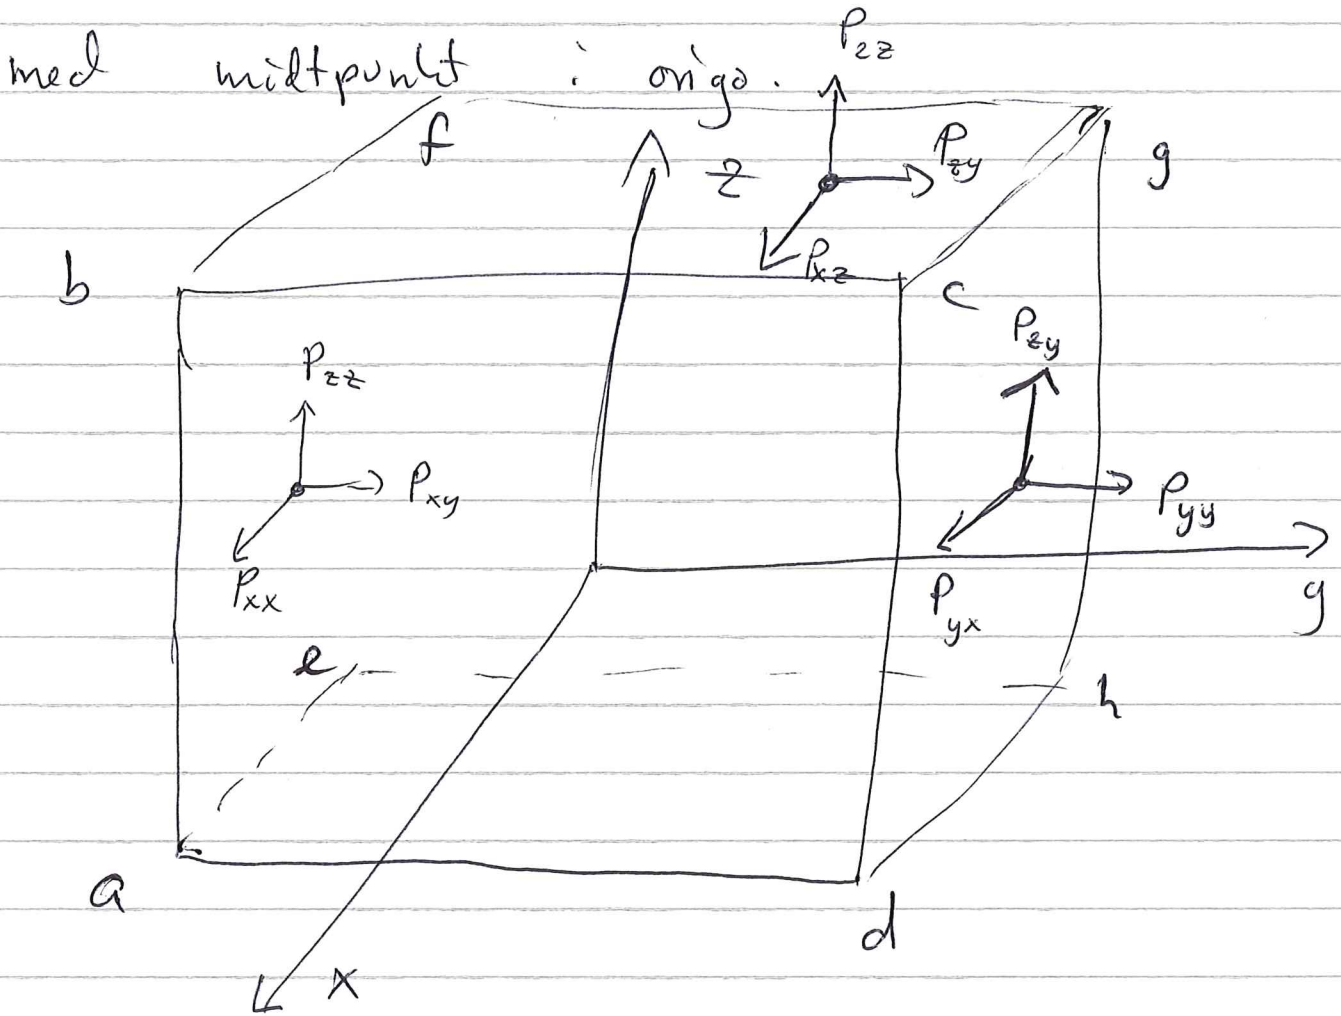 med midtpunkt i origo.
P_zz
f
z
P_zy
g
P_xz
b
c
P_zy
P_zz
P_xy
P_yy
P_xx
P_yx
y
e
h
a
d
x